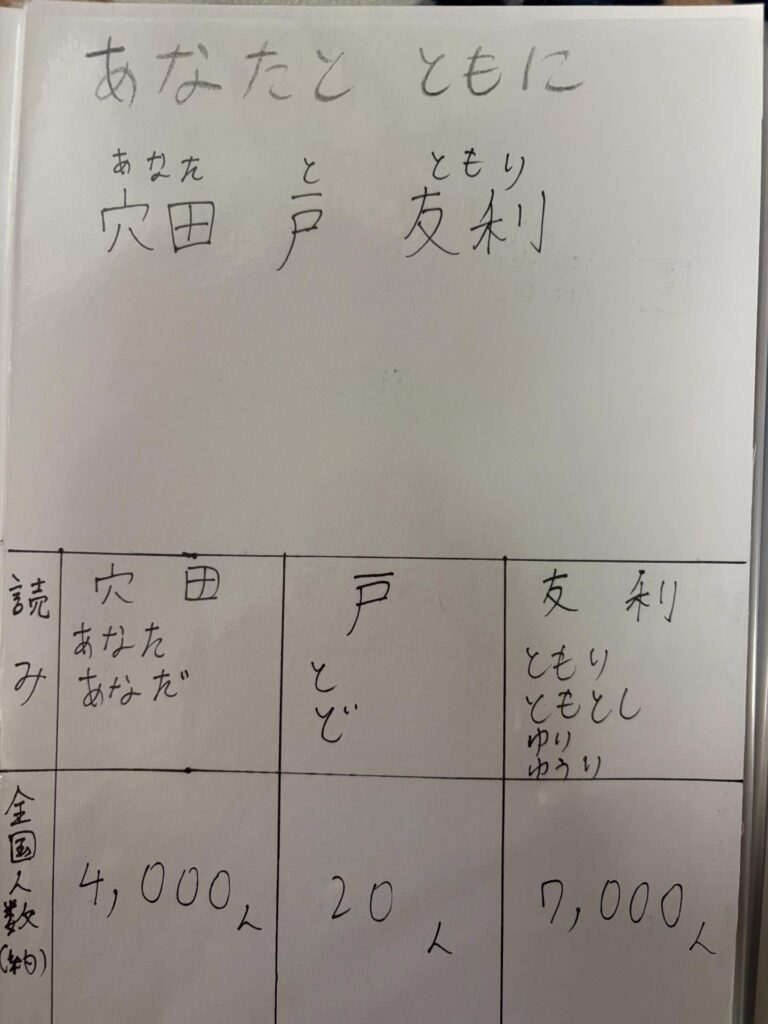 あなたと ともに
あなた と ともり
穴田 戸 友利
読み
穴田
あなた
あなだ
戸
と
ど
友利
ともり
ともとし
ゆり
ゆうり
全国人数(約)
4,000人
20人
7,000人